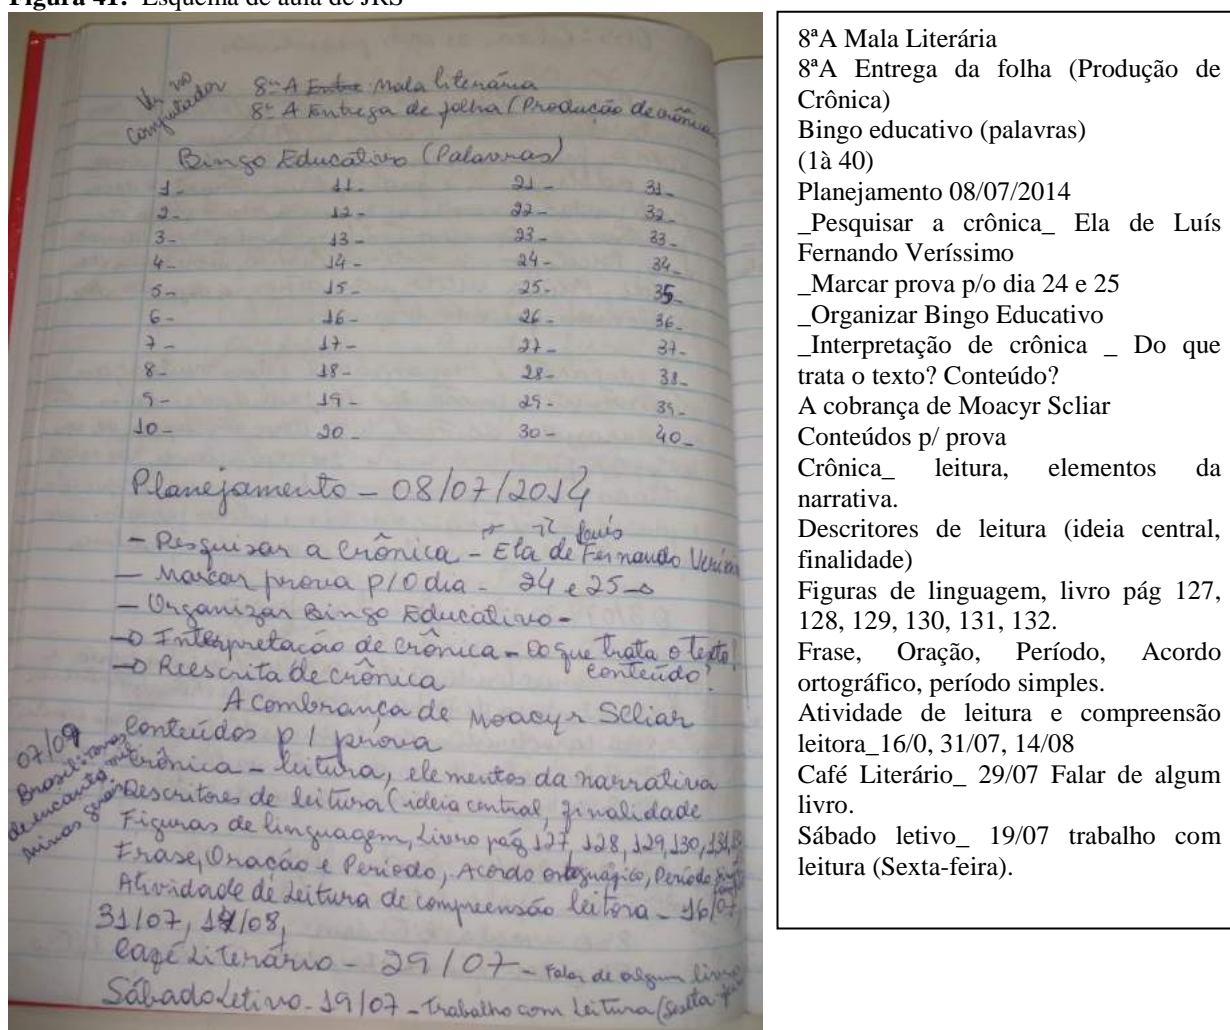 Figura 41: Esquema de aula de JRS
Ver no
computador
8ª A Entre Mala literária
8ª A Entrega de folha (Produção de crônica
Bingo Educativo (Palavras)
1- 11- 21- 31-
2- 12- 22- 32-
3- 13- 23- 33-
4- 14- 24- 34-
5- 15- 25- 35-
6- 16- 26- 36-
7- 17- 27- 37-
8- 18- 28- 38-
9- 19- 29- 39-
10- 20- 30- 40-
Planejamento - 08/07/2014
- Pesquisar a crônica - Ela de Luís Fernando
- Marcar prova p/o dia - 24 e 25
- Organizar Bingo Educativo -
Interpretação de crônica - Do que trata o texto?
conteúdo?
Reescrita de crônica
A combrança de Moacyr Scliar
conteúdos p/ prova
07/09
crônica - leitura, elementos da narrativa
Descritores de leitura (ideia central, finalidade
Figuras de linguagem, Livro pág 127, 128, 129, 130, 131,
Frase, Oração e Período, Acordo ortográfico, Período
Atividade de Leitura de compreensão leitora - 16/07,
31/07, 14/08,
Café Literário - 29/07 - Falar de algum livro
Sábado Letivo - 19/07 - trabalho com Leitura (Sexta-
8ªA Mala Literária
8ªA Entrega da folha (Produção de
Crônica)
Bingo educativo (palavras)
(1à 40)
Planejamento 08/07/2014
_Pesquisar a crônica_ Ela de Luís
Fernando Veríssimo
_Marcar prova p/o dia 24 e 25
_Organizar Bingo Educativo
_Interpretação de crônica _ Do que
trata o texto? Conteúdo?
A cobrança de Moacyr Scliar
Conteúdos p/ prova
Crônica_ leitura, elementos da
narrativa.
Descritores de leitura (ideia central,
finalidade)
Figuras de linguagem, livro pág 127,
128, 129, 130, 131, 132.
Frase, Oração, Período, Acordo
ortográfico, período simples.
Atividade de leitura e compreensão
leitora_16/0, 31/07, 14/08
Café Literário_ 29/07 Falar de algum
livro.
Sábado letivo_ 19/07 trabalho com
leitura (Sexta-feira).